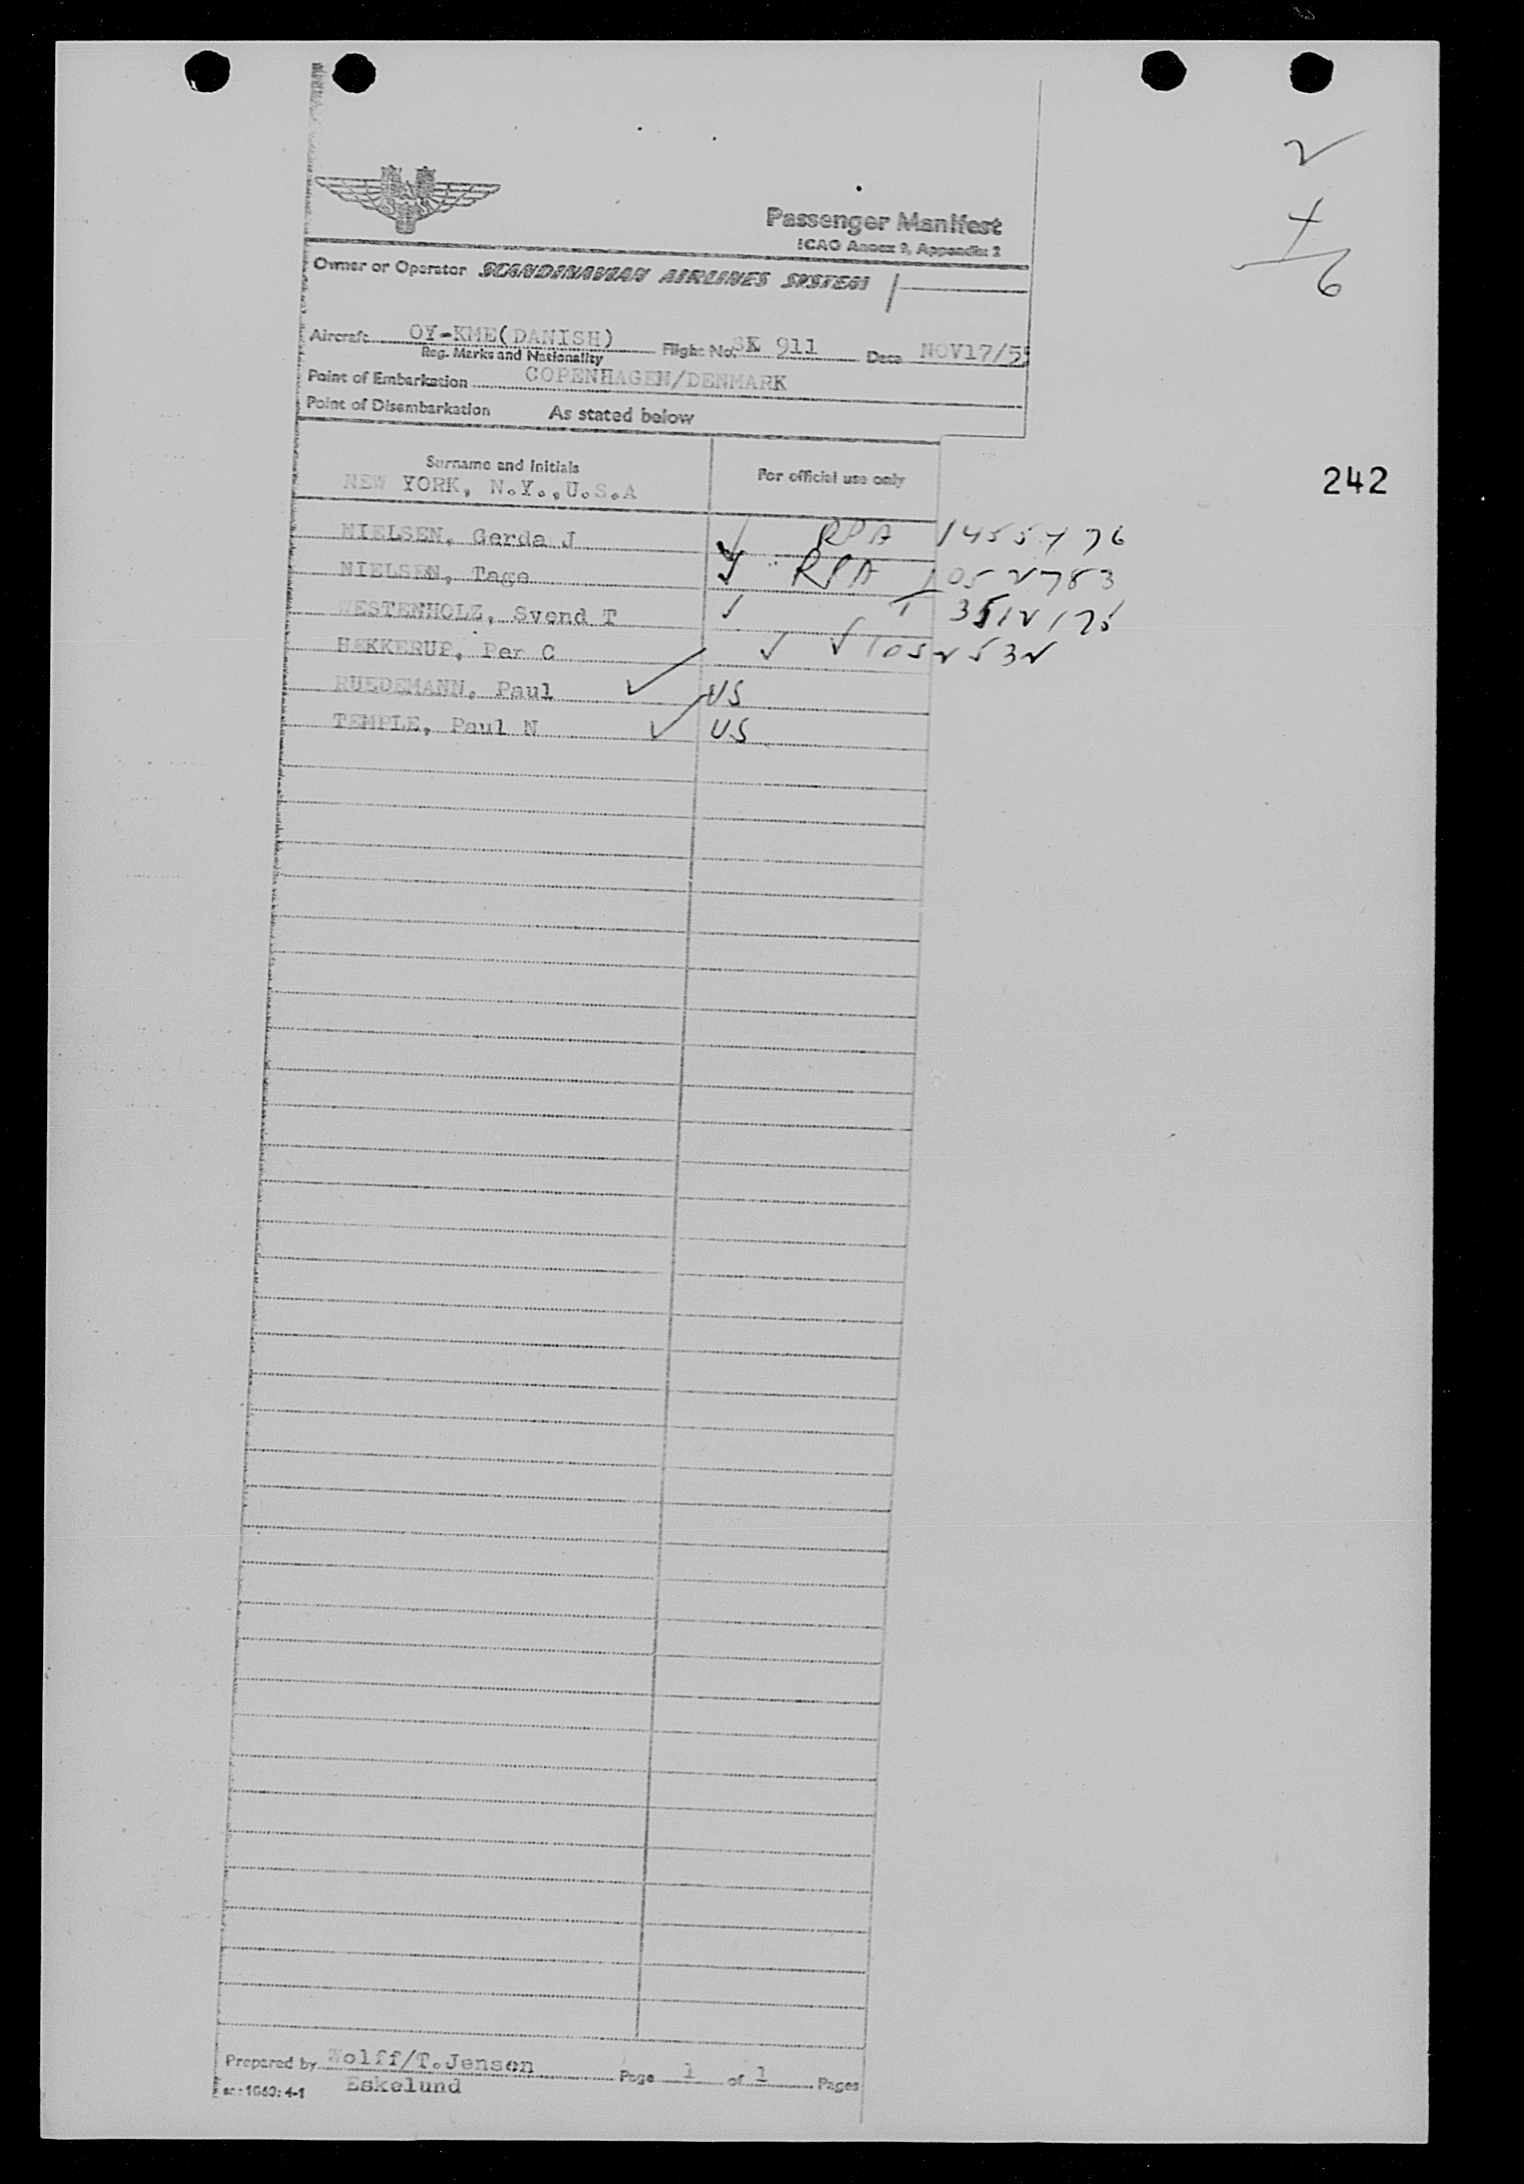 2
4
6
SAS
Passenger Manifest
ICAO Annex 9, Appendix 2
Owner or Operator SCANDINAVIAN AIRLINES SYSTEM
Aircraft OY-KME(DANISH) Flight No. SK 911 Date NOV17/55
Reg. Marks and Nationality
Point of Embarkation COPENHAGEN/DENMARK
Point of Disembarkation As stated below
Surname and Initials For official use only
NEW YORK, N.Y.,U.S.A
242
NIELSEN, Gerda J RPA
NIELSEN, Tage RPA 1052783
WESTENHOLZ, Svend T
HÆKKERUP, Per C 1052532
RUEDEMANN, Paul US
TEMPLE, Paul N US
Prepared by Wolff/T.Jensen Page 1 of 1 Pages
Eskelund